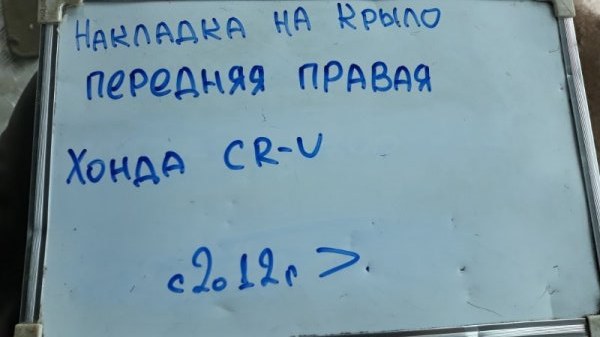 Накладка на крыло
передняя правая
Хонда CR-V
с 2012г >.